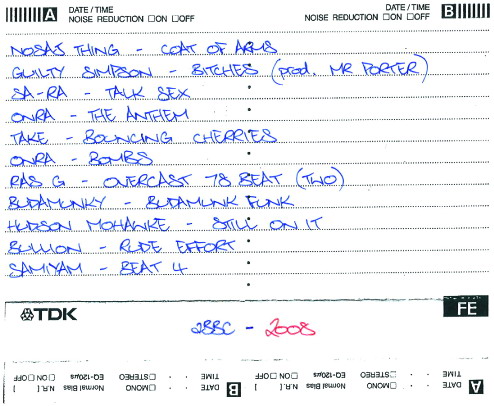 A DATE / TIME DATE / TIME B
NOISE REDUCTION □ON □OFF NOISE REDUCTION □ON □OFF
NOSAJ THING - COAT OF ARMS
GUILTY SIMPSON - BITCHES (prod. MR PORTER)
SA-RA - TALK SEX
ONRA - THE ANTHEM
TAKE - BOUNCING CHERRIES
ONRA - BOMBS
RAS G - OVERCAST 78 BEAT (TWO)
BUDAMUNKY - BUDAMUNK FUNK
HUDSON MOHAWKE - STILL ON IT
BULLION - RUDE EFFORT
SAMIYAM - BEAT 4
TDK FE
2BBC - 2008
A DATE □MONO Normal Bias N.R. [ ] B DATE □MONO Normal Bias N.R. [ ]
TIME □STEREO EQ-120μs □ON □OFF TIME □STEREO EQ-120μs □ON □OFF